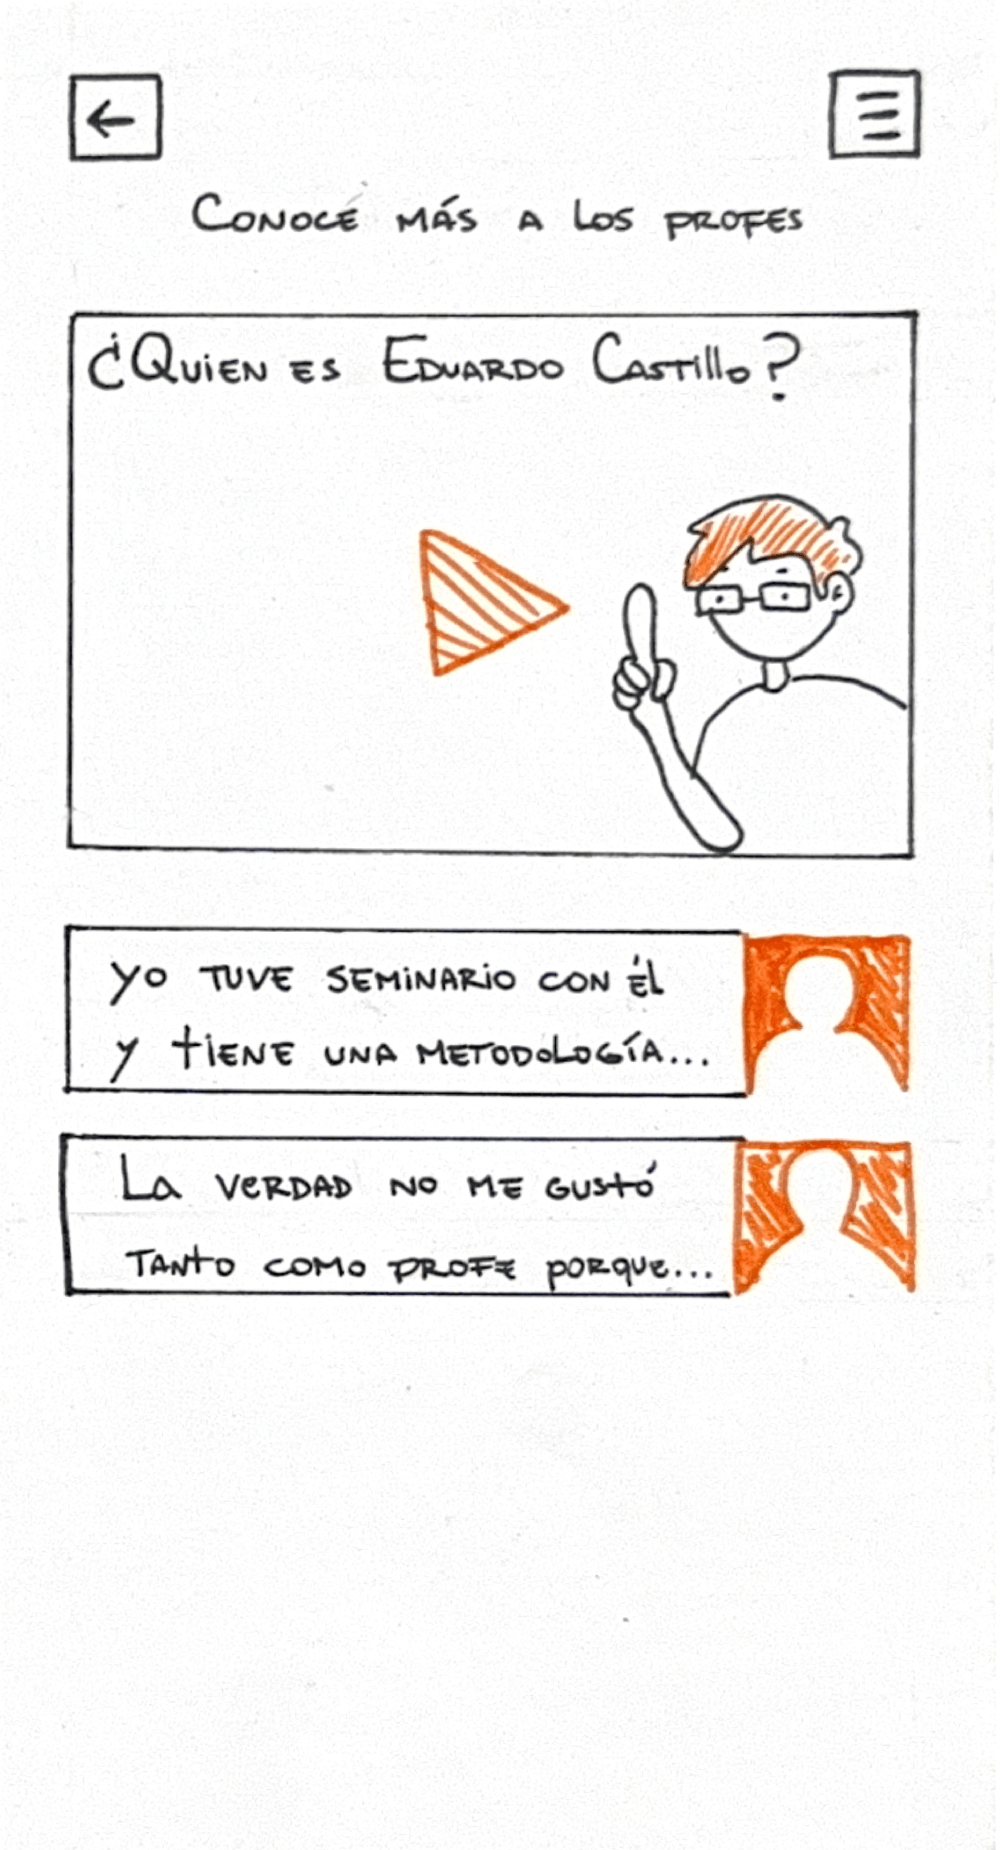 Conocé más a los profes
¿Quien es Eduardo Castillo?
Yo tuve seminario con él
y tiene una metodología...
La verdad no me gustó
tanto como profe porque...